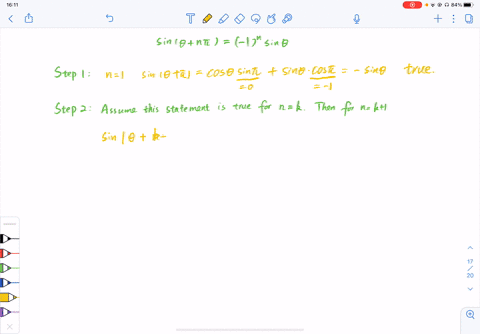 16:11
84%
sin(θ+nπ) = (-1)ⁿ sinθ
Step 1: n=1 sin(θ+π) = cosθ sinπ + sinθ·cosπ = - sinθ true.
=0 =-1
Step 2: Assume this statement is true for n=k. Then for n=k+1
sin(θ + k
17
/
20